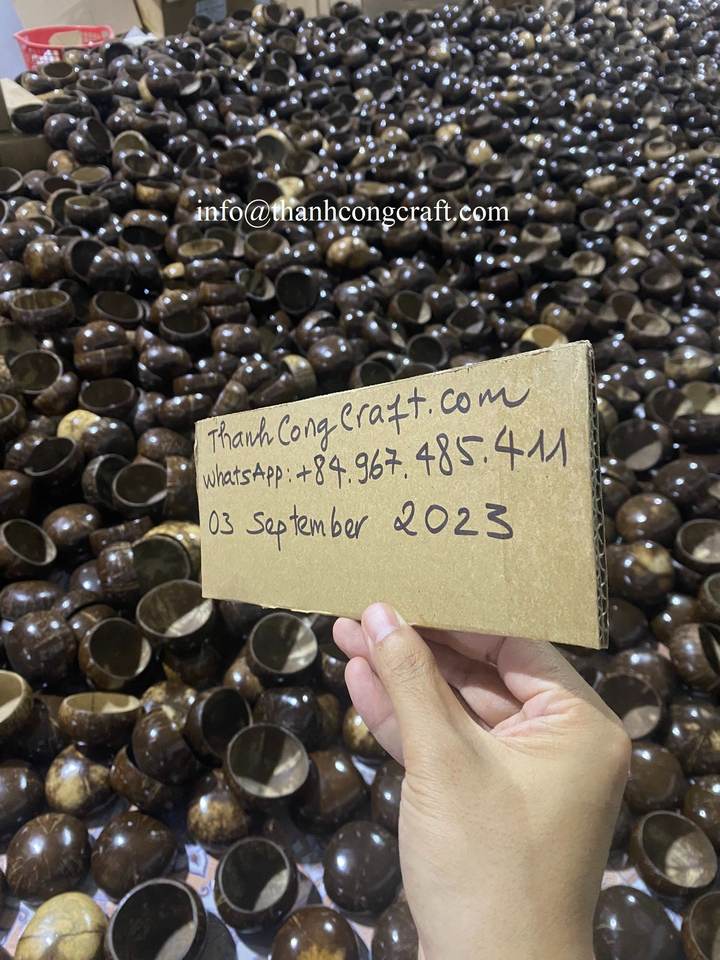 info@thanhcongcraft.com
ThanhCongCraft.com
WhatsApp: +84.967.485.411
03 September 2023